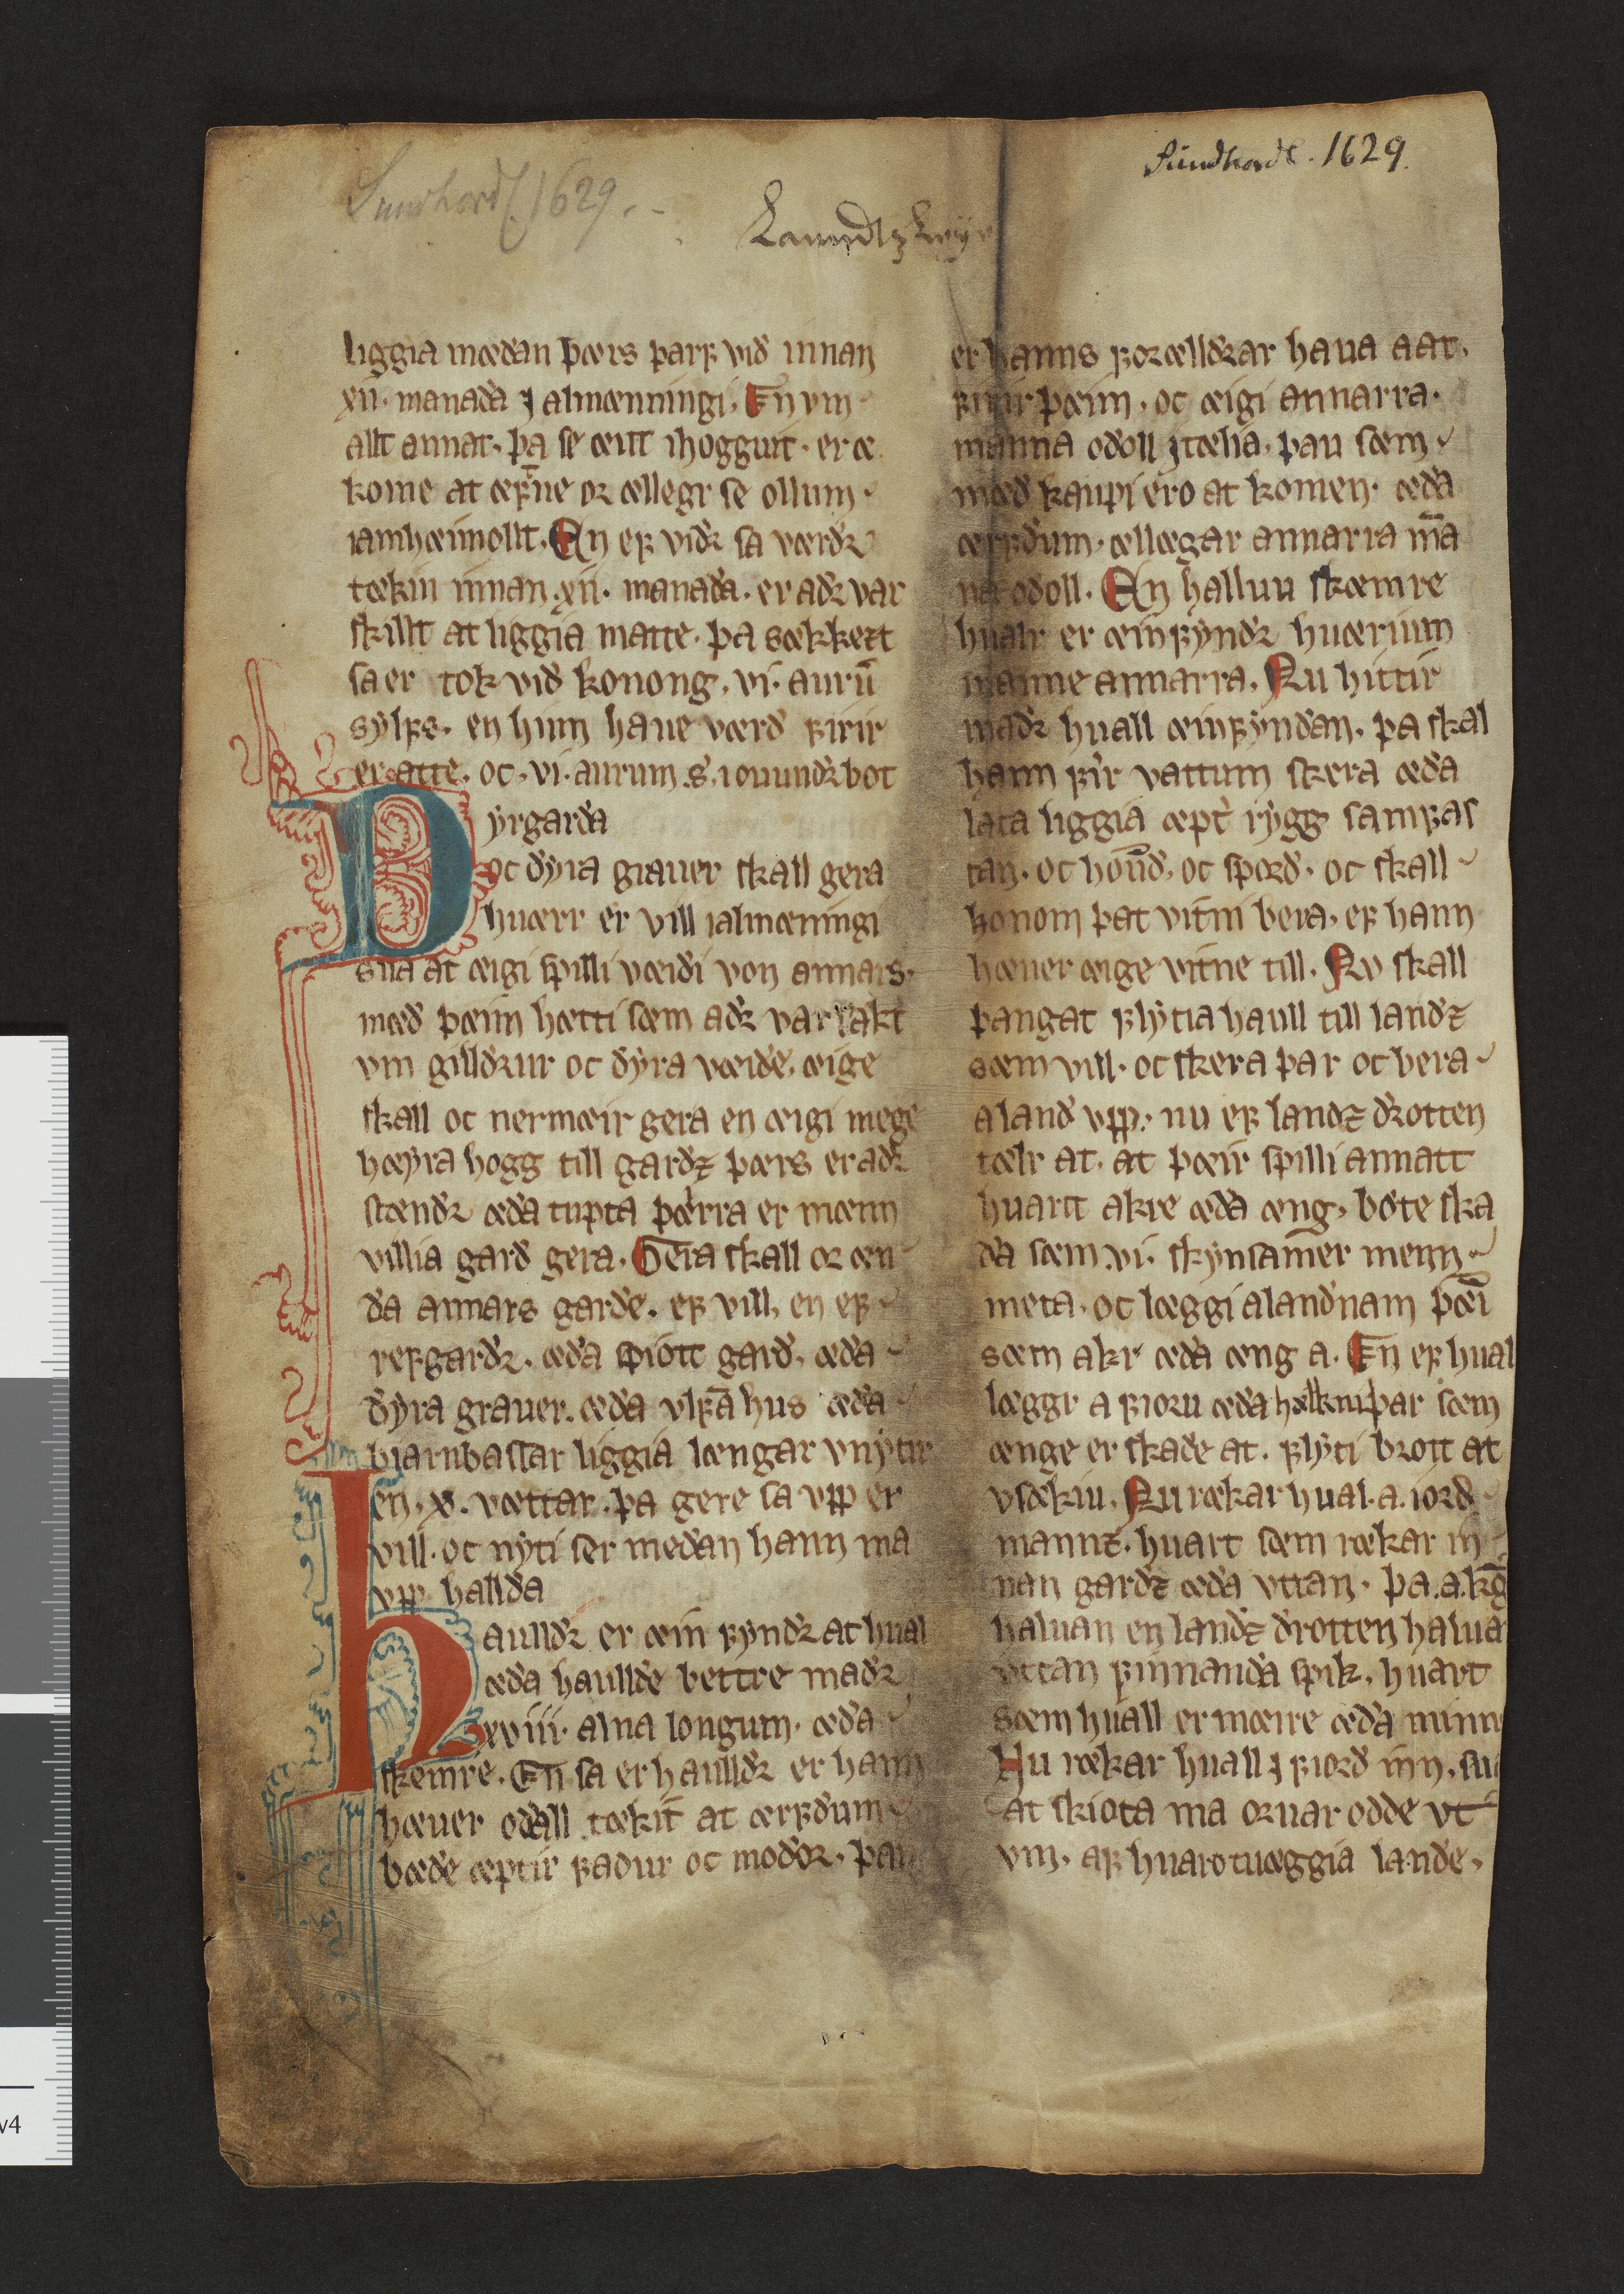 Sundhordl. 1629.
Sundhordl. 1629.
Launndtz
liggia mædan þærs þarf við innan
xíí. manaða ȷ almænningi. En vm
allt annat. þa se æitt ihogguit. er æ
kome at æfne or ællegr se ollum
iamhæimollt. En ef viðr sa værðr
tækin innan .xíí. manaða. er aðr var
skillt at liggia matte. þa sækkezt
sa er tok við konong. vi. auru̅
sylfs. en hinn haue værð firir
er atte. oc .vi. aurum .s. i ouundr bot
Dyrgarða
oc dyra grauer skall gera
huærr er vill i almæningi
sua at æigi spilli væiði von annars.
mæð þæim hætti sæm aðr var sakt
vm gilldrur oc dyra væiðe. æige
skall oc nermæir gera en æigi mege
hæyra hogg till garðz þærs er aðr
stændr æða tupta þærra er mænn
villia garð gera. Gera skall or æn
da annars garðe. ef vill, en ef
refgarðr. æða þiott garð. æða
dyra grauer. æða vlfa̅ hus æða
biarnbasstar liggia længar vnytir
en .x. vættar. þa gere sa vpp er
vill. oc nyti ser meðan hann ma
vpp hallda
haulldr er æin fyndr at hual
æða haullde bettre maðr
xviii. alna longum. æða
skemre. En sa er haulldr er hann
hæuer oðall tækit at ærfðum
bæðe æptir faður oc moðor. þau
er hanns forælldrar haua aat.
firir þæim. oc æigi annarra
manna oðoll ȷ tælia. þau sæm
mæð kaupi ero at komen. æða
ærfðum. ællægar annarra ma̅
na oðoll. En halluu skæmre
hualr er æinfyndr huærium
manne annarra. Nu hittir
maðr huall æinfyndan. þa skal
hann fir vattum skera æða
lata liggia æpt rygg samfas
tan. oc hou̅ð. oc sporð. oc skall
honom þat vitni bera. ef hann
hæuer æige vitne till. Nv skall
þangat flytia haull till landz
sæm vill. oc skera þar oc bera
a land vpp. nu ef landz drotten
tælr at. at þæir spilli annatt
huart akre æða æng. bøte ska
ða sæm .vi. skynsamer menn
meta. oc læggi a landnam þæi̅
sæm akr æða æng a. En ef hual
læggr a fioru æða hælkni þar sæm
ænge er skaðe at. flyti brott at
vsækiu. Nu rækar hual. a. iorð
mannz. huart sæm rækar in
nan garðz æða vttan. þa .a. k̅g
haluan en landz drotten halua
vttan finnanda spik. huart
sæm huall er mæire æða minn
Nu rækar huall ȷ fiorð inn. sua
at skiota ma oruar odde vt
vm. af huarotuæggia lande.